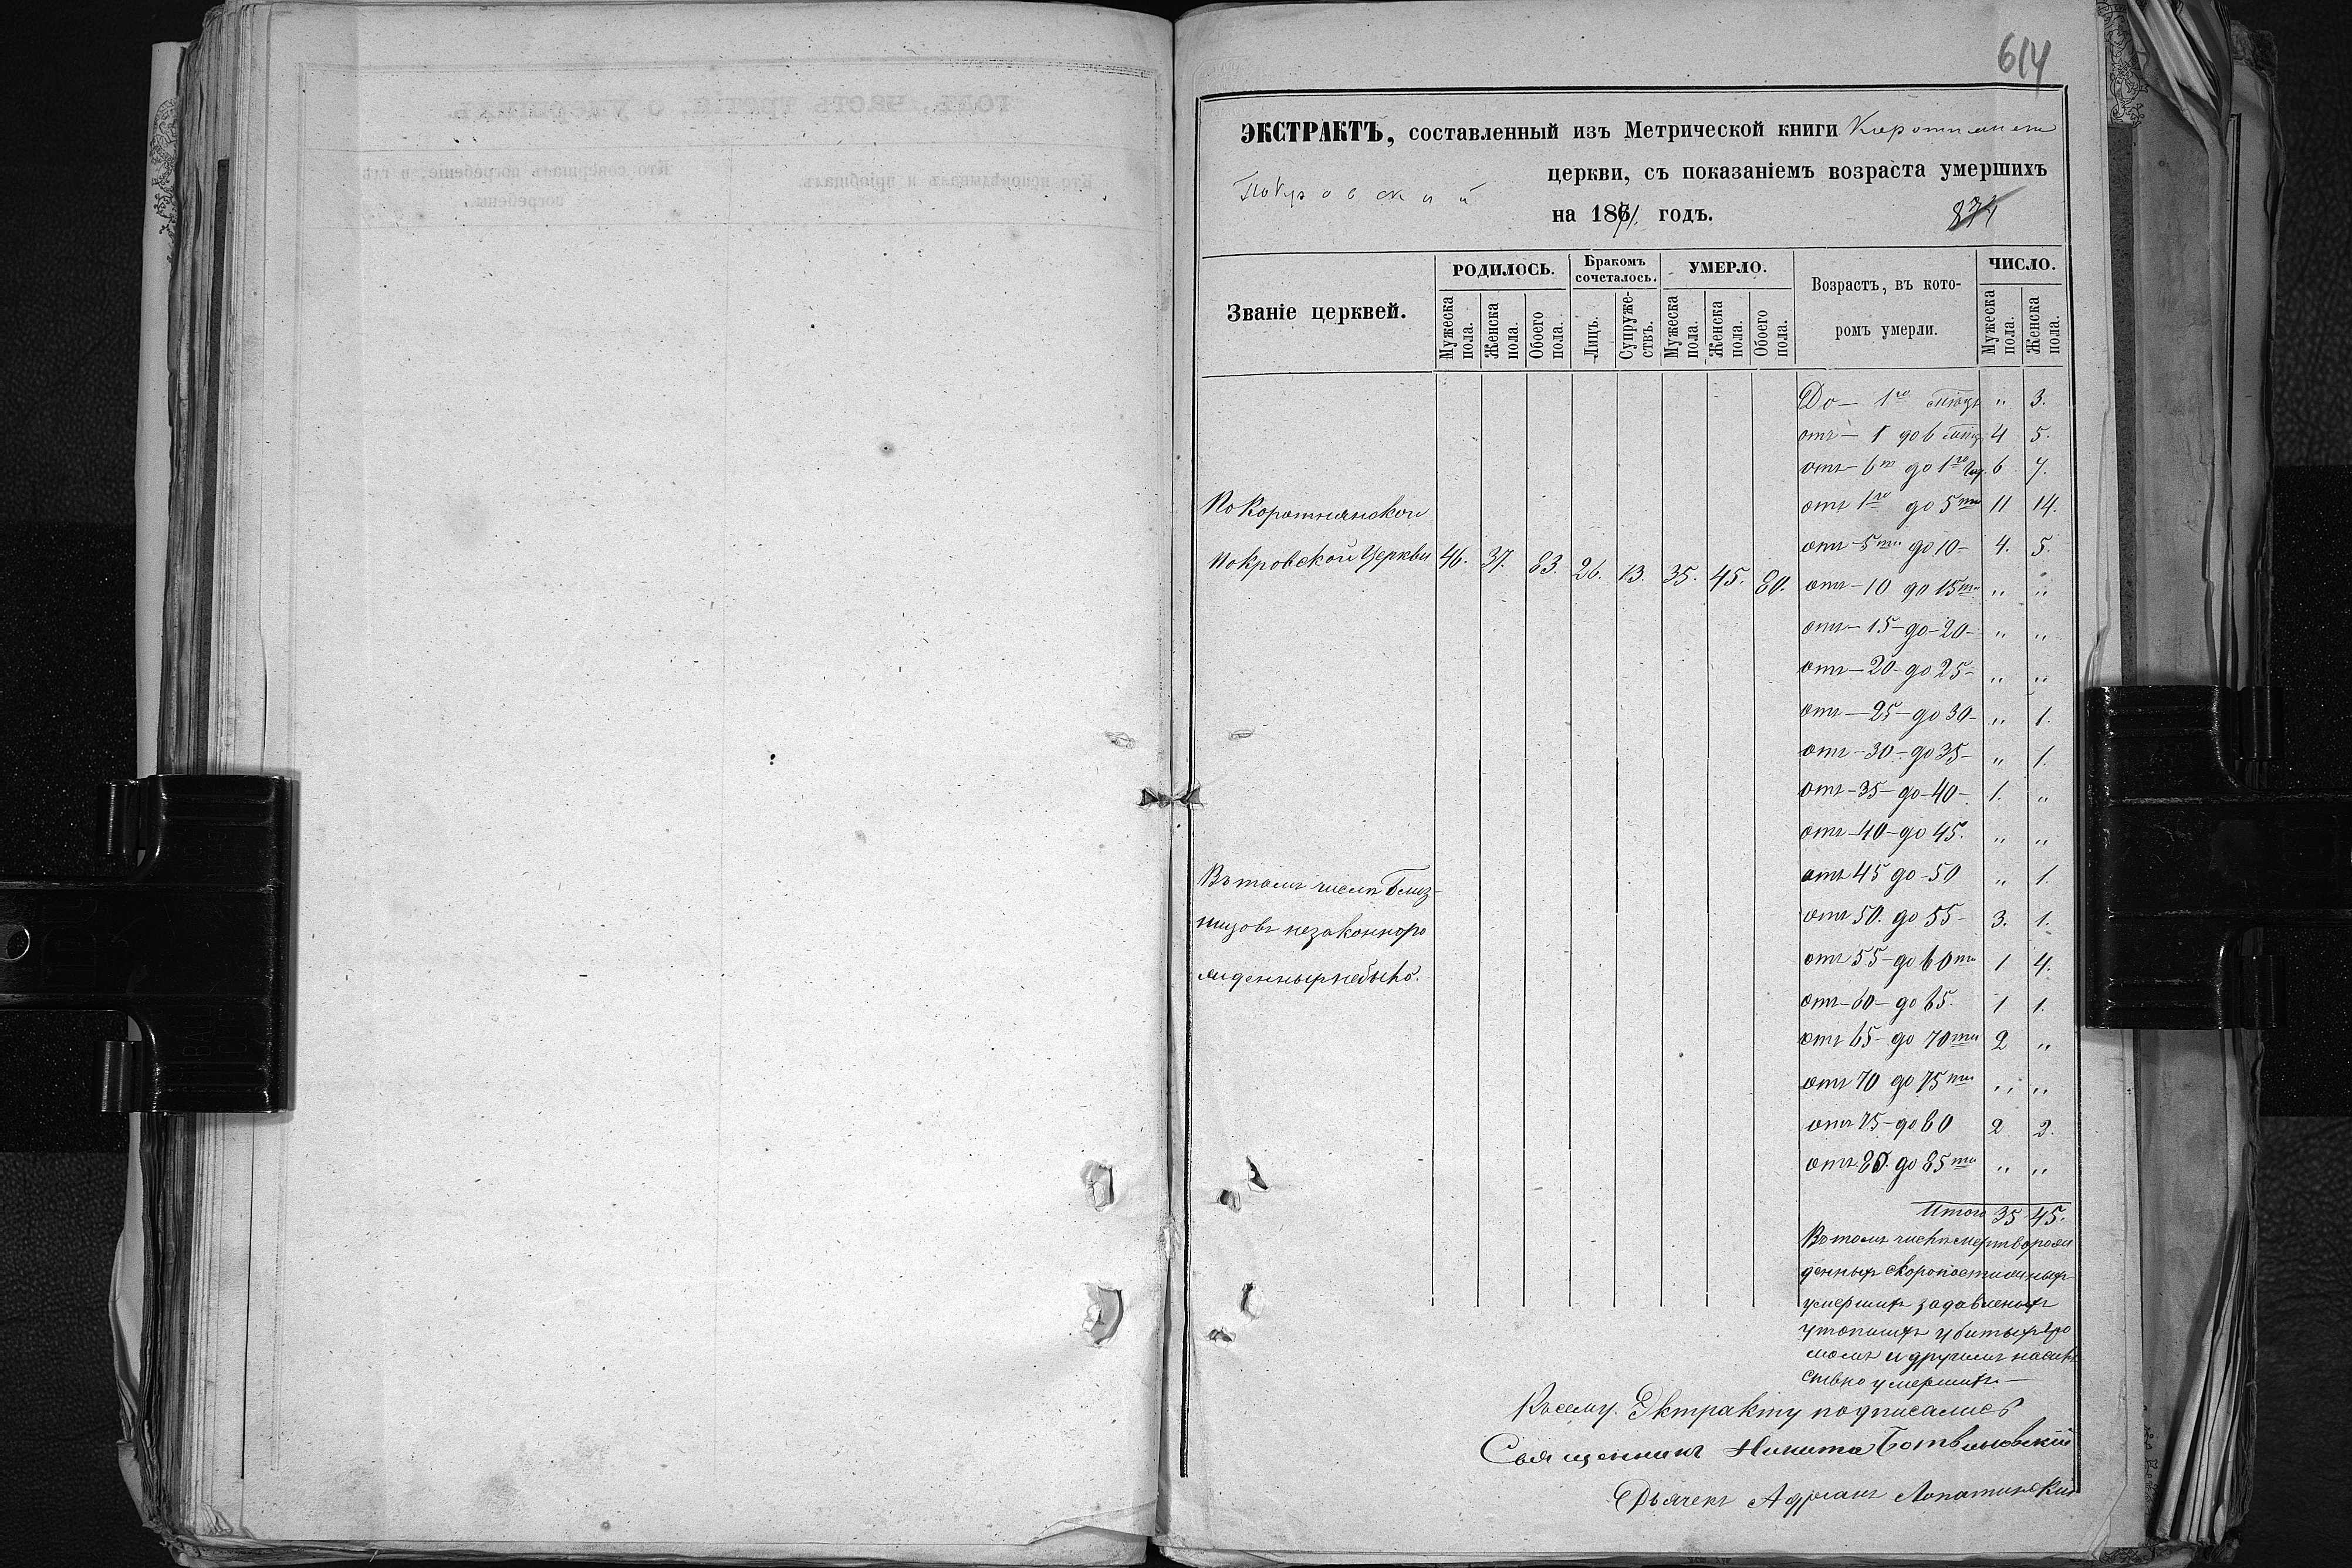 614
ЭКСТРАКТЪ, составленный изъ Метрической книги
Покровской церкви, съ показаніемъ возраста умершихъ
на 1871 годъ.
874
Званіе церквей. РОДИЛОСЬ. Бракомъ сочеталось. УМЕРЛО. Возрастъ, въ кото- ЧИСЛО.
ромъ умерли.
Мужеска пола. Женска пола. Обоего пола. Лицъ. Супруже-ствъ. Мужеска пола. Женска пола. Обоего пола. Мужеска пола. Женска пола.
По Коротнянской
Покровской Церкви 46. 37. 83. 26. 13. 35. 45. 80.
Въ томъ числѣ Близ-
нецовъ незаконноро
жденныхъ небыло.
До — 1го „ 3.
отъ — 1 до 6 4 5.
отъ — 6ти до 1го 6 7.
отъ 1го до 5ти 11 14.
отъ — 5ти до 10 — 4. 5.
отъ — 10 до 15ти „ „
отъ — 15 — до — 20 — „ „
отъ — 20 — до 25 — „ „
отъ — 25 — до 30 — „ 1.
отъ — 30 — до 35 — „ 1.
отъ — 35 — до — 40 — 1. „
отъ — 40 — до 45. „ „
отъ 45 до — 50 „ 1.
отъ 50. до 55 — 3. 1.
отъ 55 — до 60ти 1 4.
отъ — 60 — до 65. 1 1.
отъ 65 — до 70ти 2 „
отъ 70 до 75ти „ „
отъ 75 — до 80 2 2.
отъ 80. до 85ти „ „
Итого 35 45.
Въ томъ числѣ мертворож
денныхъ скоропостижныхъ
умершихъ задавленыхъ
утопшихъ убитыхъ гро
момъ и другимъ насиль
ствно умершихъ —
Къ сему Эктракту подписались
Священникъ Никита Ботвиновскій
Дьячекъ Адріанъ Лопатинскій